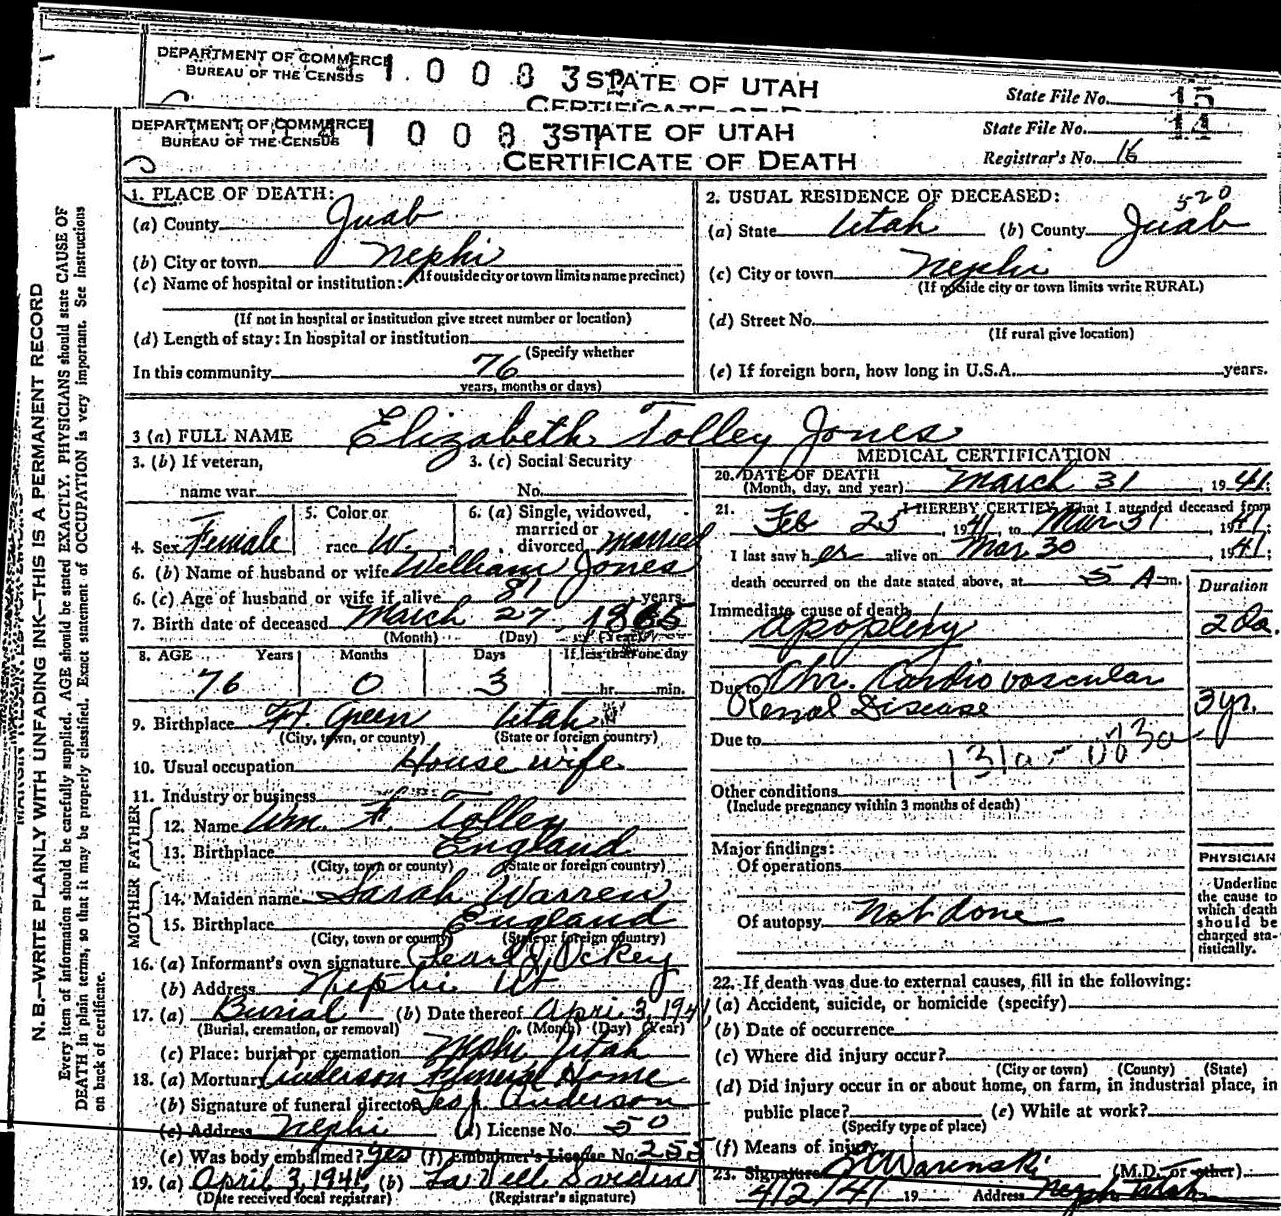 DEPARTMENT OF COMMERCE
BUREAU OF THE CENSUS
STATE OF UTAH
State File No. 15
DEPARTMENT OF COMMERCE
BUREAU OF THE CENSUS
STATE OF UTAH
CERTIFICATE OF DEATH
State File No. 14
Registrar's No. 16
N. B.—WRITE PLAINLY WITH UNFADING INK—THIS IS A PERMANENT RECORD
Every item of information should be carefully supplied. AGE should be stated EXACTLY. PHYSICIANS should state CAUSE OF
DEATH in plain terms, so that it may be properly classified. Exact statement of OCCUPATION is very important. See instructions
on back of certificate.
1. PLACE OF DEATH:
(a) County Juab
(b) City or town Nephi
(If outside city or town limits name precinct)
(c) Name of hospital or institution:
(If not in hospital or institution give street number or location)
(d) Length of stay: In hospital or institution
(Specify whether
In this community 76
years, months or days)
2. USUAL RESIDENCE OF DECEASED:
520
(a) State Utah (b) County Juab
(c) City or town Nephi
(If outside city or town limits write RURAL)
(d) Street No.
(If rural give location)
(e) If foreign born, how long in U.S.A. years.
3 (a) FULL NAME Elizabeth Tolley Jones
3. (b) If veteran,
name war
3. (c) Social Security
No.
4. Sex Female
5. Color or
race W.
6. (a) Single, widowed,
married or
divorced married
6. (b) Name of husband or wife William Jones
6. (c) Age of husband or wife if alive 81 years
7. Birth date of deceased March 27, 1865
(Month) (Day) (Year)
8. AGE Years Months Days If less than one day
76 0 3 hr. min.
9. Birthplace Ft. Green Utah
(City, town, or county) (State or foreign country)
10. Usual occupation House wife
11. Industry or business
FATHER
12. Name Wm. F. Tolley
13. Birthplace England
(City, town or county) (State or foreign country)
MOTHER
14. Maiden name Sarah Warren
15. Birthplace England
(City, town or county) (State or foreign country)
16. (a) Informant's own signature Pearl J Ockey
(b) Address Nephi Ut
17. (a) Burial (b) Date thereof April 3, 1941
(Burial, cremation, or removal) (Month) (Day) (Year)
(c) Place: burial or cremation Nephi Utah
18. (a) Mortuary Anderson Funeral Home
(b) Signature of funeral director Anderson
(c) Address Nephi (d) License No. 50
(e) Was body embalmed? yes (f) Embalmer's License No. 255
19. (a) April 3, 1941 (b)
(Date received local registrar) (Registrar's signature)
MEDICAL CERTIFICATION
20. DATE OF DEATH
(Month, day, and year) March 31, 1941
21. I HEREBY CERTIFY, That I attended deceased from
Feb 25, 1941, to Mar 31, 1941;
I last saw her alive on Mar 30, 1941;
death occurred on the date stated above, at 5 A m.
Duration
Immediate cause of death
Apoplexy 2 Da.
Due to Chr. Cardio vascular
Renal Disease 3 yr.
Due to
131a
Other conditions
(Include pregnancy within 3 months of death)
Major findings:
Of operations
Of autopsy Not done
PHYSICIAN
Underline
the cause to
which death
should be
charged sta-
tistically.
22. If death was due to external causes, fill in the following:
(a) Accident, suicide, or homicide (specify)
(b) Date of occurrence
(c) Where did injury occur?
(City or town) (County) (State)
(d) Did injury occur in or about home, on farm, in industrial place, in
public place? (e) While at work?
(Specify type of place)
(f) Means of injury
23. Signature Warenski (M.D. or other)
4/2/41 19 Address Nephi Utah